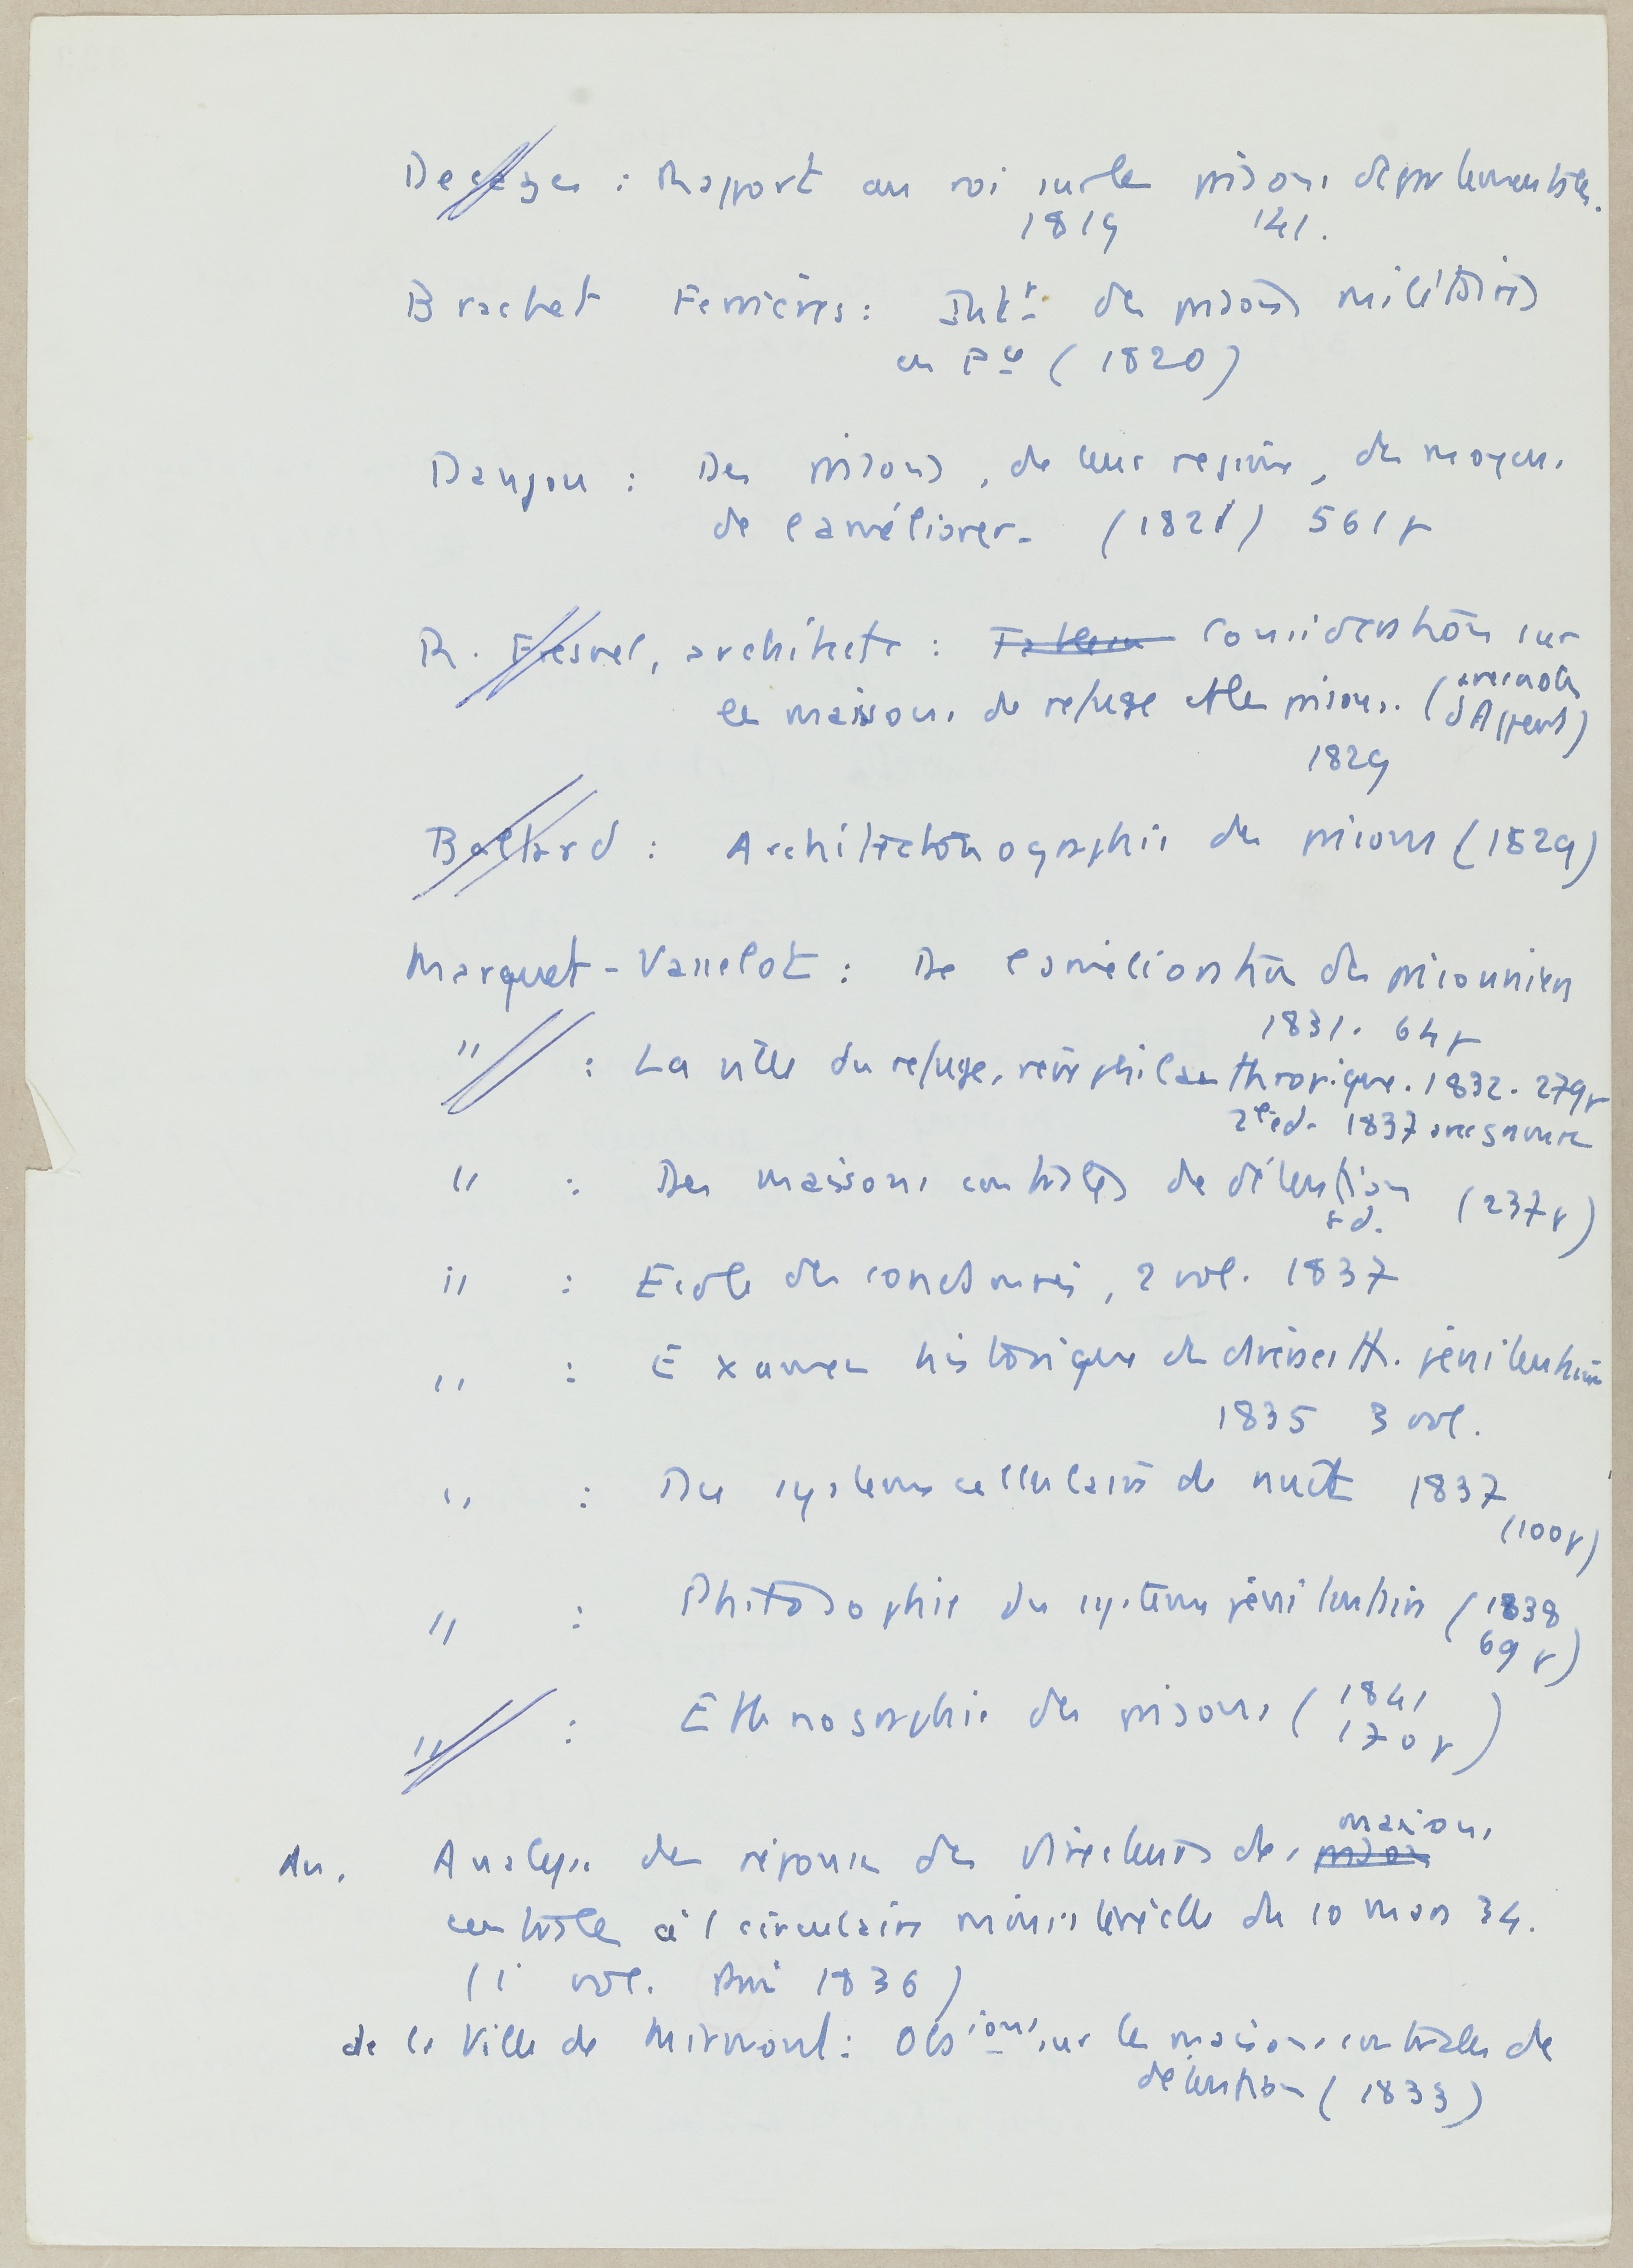 Decazes : Rapport au roi sur les prisons départementales.
1819 141.
Brachet Ferrières : Int<sup>r</sup> des prisons militaires
en F<sup>ce</sup> (1820)
Danjou : Des prisons, de leur régime, des moyens
de l'améliorer. (1821) 561 p
R. Fresnel, architecte : Considérations sur
les maisons de refuge et les prisons. (avec notes
d'Appert)
1829
Baltard : Architectonographie des prisons (1829)
Marquet-Vasselot : De l'amélioration des prisonniers
1831. 64 p
" : La ville du refuge, rêve philanthropique. 1832. 279 p
2e ed. 1837 avec gravure
" : Des maisons centrales de détention (237 p)
s d.
" : Ecole des condamnés, 2 vol. 1837
" : Examen historique des diverses th. pénitentiaires
1835 3 vol.
" : Du système cellulaire de nuit 1837
(100 p)
" : Philosophie du système pénitentiaire (1838
69 p)
" : Ethnographie des prisons (1841
170 p)
An. Analyse des réponses des directeurs des maisons
centrales à l circulaire ministérielle du 10 mars 34.
(1 vol. 1836)
de la Ville de Mirmont : Obs<sup>ions</sup> sur les maisons centrales de
détention (1833)